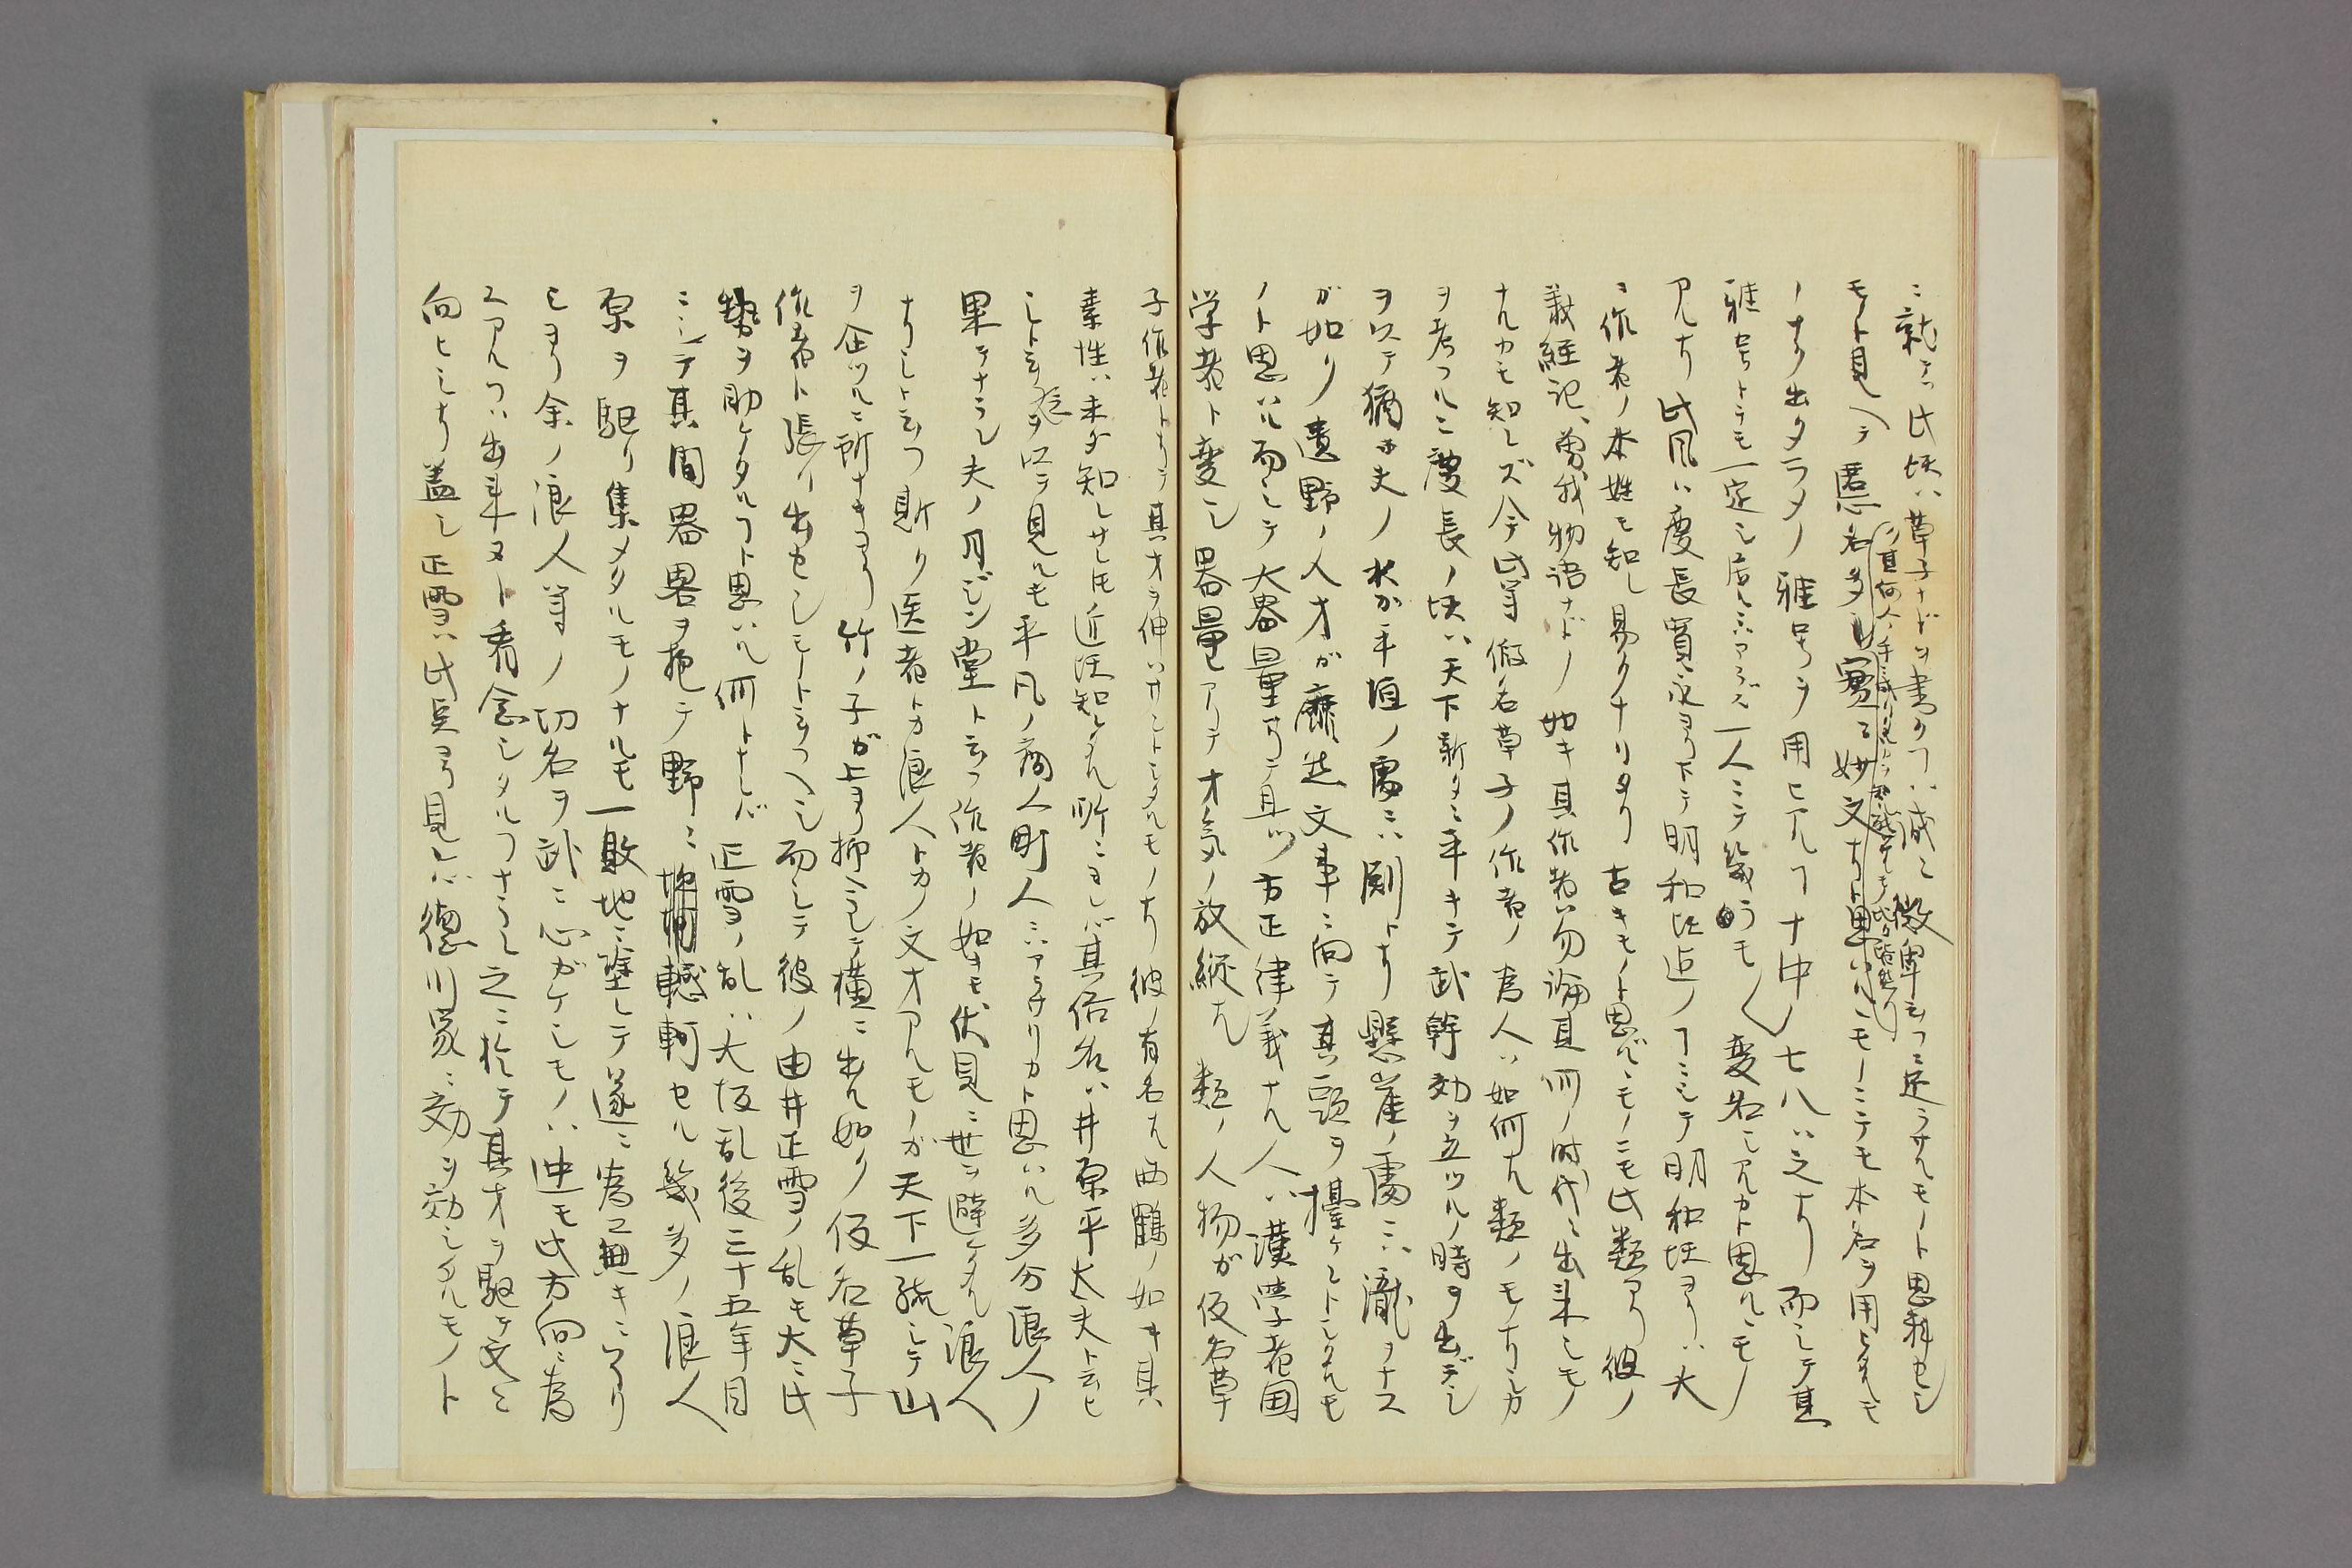 ニ就テハ此頃ハ草子ナドヲ書クヿハ誠ニ微卑云フニ足ラサルモノト思料セシ
モノト見ヘテ匿名多シ実ニ妙文ナリト思ハルヽモノニテモ本名ヲ用ヒタルモ
ノナク出タラメノ雅号ヲ用ヒアルヿ十中ノ七八ハ之ナリ而シテ其
雅号トテモ一定シ居ルニハアラズ一人ニテ幾ツモ〱変名シアルカト思ハルヽモノ
アルナリ此風ハ慶長寛永ヨリ下テ明和比迄ノヿニシテ明和頃ヨリハ大
ニ作者ノ本姓モ知レ易クナリタリ古キモノト思ハルヽモノニモ此類アリ彼ノ
義経記、曽我物語ナドノ如キ其作者ハ勿論其何ノ時代ニ出来シモノ
ナルカモ知レズ今此等仮名草子ノ作者ノ為人ハ如何ナル類ノモノナリシカ
ヲ考フルニ慶長ノ頃ハ天下新タニ平キテ武幹効ヲ立ツルノ時ヲ出デシ
ヲ以テ猶ホ夫ノ水ガ平垣ノ處ニハ則トナリ懸崖ノ處ニハ瀧ヲナス
ガ如リ遺野ノ人才ガ靡然文事ニ向テ其頭ヲ擡ケントシタルモ
ノト思ハル而シテ大器量アリテ且ツ方正律義ナル人ハ漢学者国
学者ト変シ器量アリテ才気ノ放縦ナル類ノ人物ガ仮名草
子作者トナリテ其才ヲ伸ハサントシタルモノナリ彼ノ有名ナル西鶴ノ如キ其
素性ハ未ダ知レサレ𪜈近頃知レタル所ニヨレバ其俗名ハ井原平太夫ト云ヒ
シト云フヲ以テ見ルモ平凡ノ商人町人ニハアラサリカト思ハル多分浪人ノ
果テナラン夫ノ月ジン堂ト云フ作者ノ如キモ伏見ニ世ヲ避ケタル浪人
ナリシト云フ斯ク医者トカ浪人トカノ文才アルモノガ天下一統シテ山
ヲ企ツルニ所ナキヨリ竹ノ子ガ上ヨリ抑ヘラレテ横ニ出ル如ク仮名草子
作者ト張リ出セシモノト云フヘシ而シテ彼ノ由井正雪ノ乱モ大ニ此
勢ヲ助ケタルヿト思ハル何トナレバ正雪ノ乱ハ大坂乱後三十五年目
ニシテ其間器畧ヲ抱テ野ニ轗軻セル幾多ノ浪人
原ヲ駆リ集メタルモノナルモ一敗地ニ塗レテ遂ニ為ス無キニ至リ
シヨリ余ノ浪人等ノ功名ヲ武ニ心ガケシモノハ迚モ此方向ニ為
スアルヿハ出来ヌト看念シタルヿナラン之ニ於テ其才ヲ駆テ文ニ
向ヒシナリ蓋シ正雪ハ此点ヨリ見レバ徳川家ニ効ヲ効シタルモノト